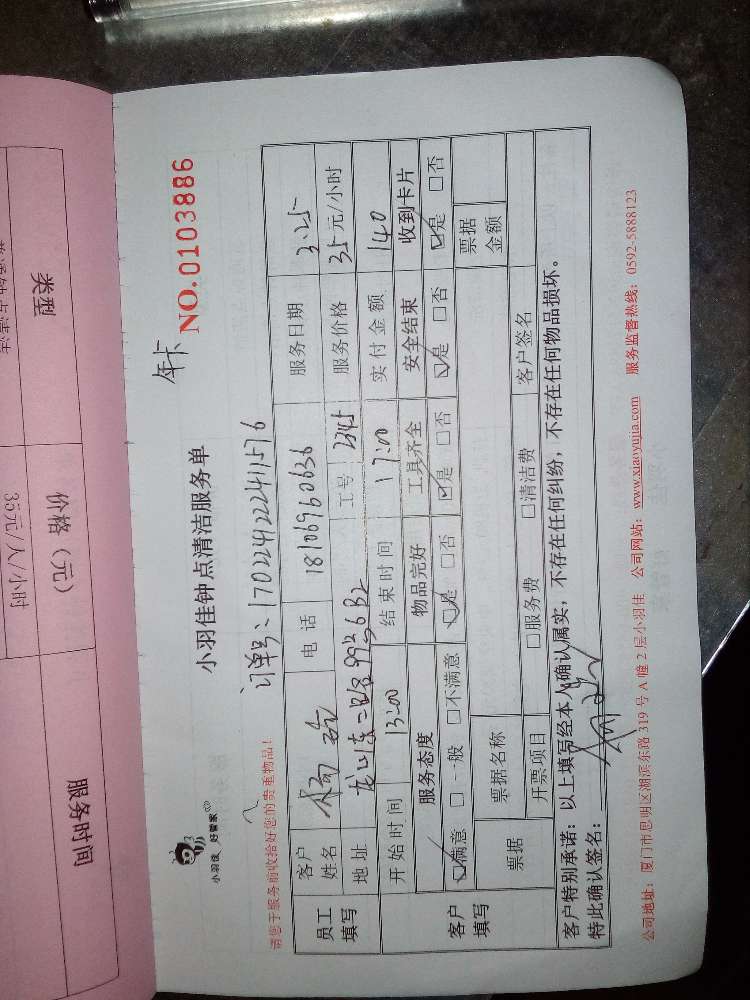 小羽佳 好管家
小羽佳钟点清洁服务单
年卡
NO.0103886
订单号:170224122241576
请您于服务前收拾好您的贵重物品!
员工填写
客户姓名
电话 18106960636
服务日期 3.25
地址 龙山东二路99号632
工号 2345
服务价格 35元/小时
开始时间 13:00
结束时间 17:00
实付金额 140
客户填写
服务态度 物品完好 工具齐全 安全结束 收到卡片
☑满意 □一般 □不满意 ☑是 □否 ☑是 □否 ☑是 □否 ☑是 □否
票据 票据名称 票据金额
开票项目 □服务费 □清洁费 客户签名
客户特别承诺:以上填写经本人确认属实,不存在任何纠纷,不存在任何物品损坏。
特此确认签名:
公司地址:厦门市思明区湖滨东路319号A幢2层小羽佳 公司网站:www.xiaoyujia.com 服务监督热线:0592-5888123
类型 价格(元) 服务时间
35元/人/小时